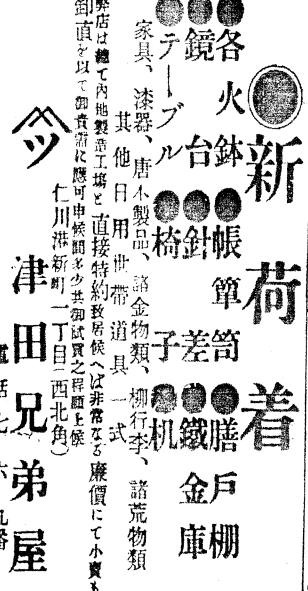 ●新荷着
●各火鉢●帳簞笥●膳戸棚
●鏡台●針差●鐵金庫
●テーブル●椅子●机
家具、漆器、唐木製品、諸金物類、柳行李、諸荒物類
其他日用世帶道具一式
弊店は總て內地製造工場と直接特約致居候へば非常なる廉價にて小賣も
御直を以て御貴需に應可申候間多少共御試買之程願上候
仁川港新町一丁目(西北角)
ツ 津田兄弟屋
電話七六九番